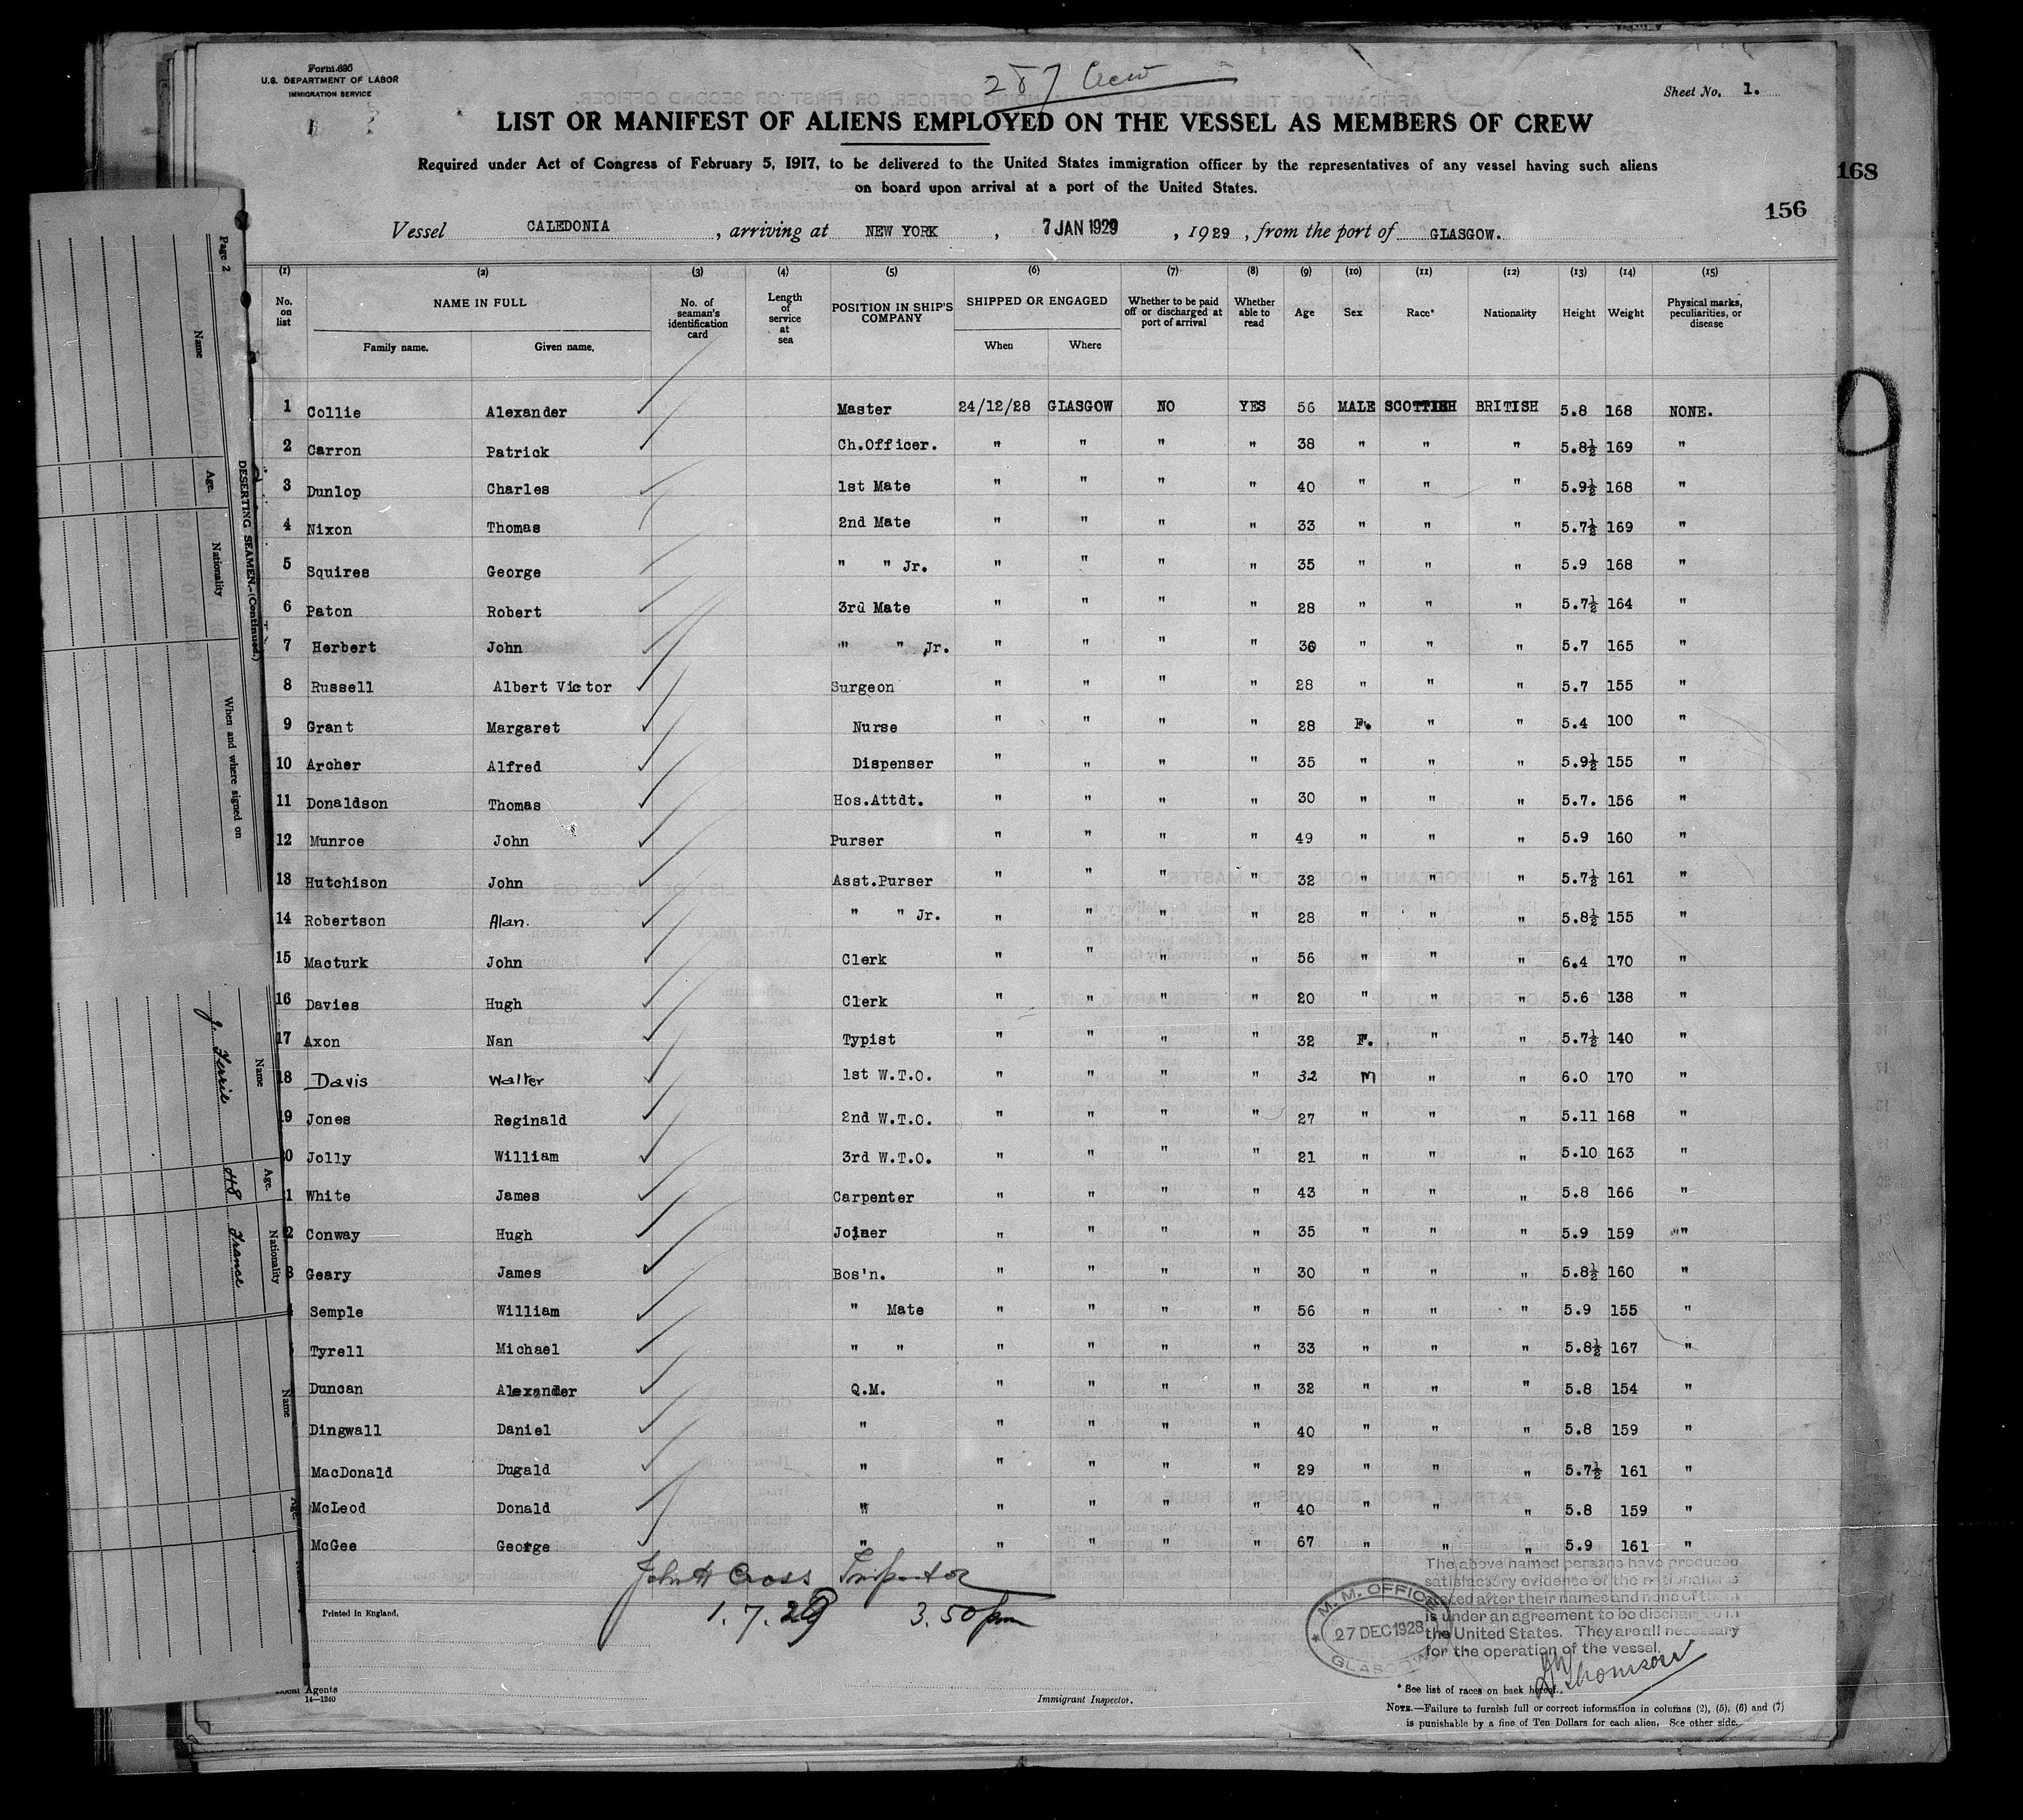 Form 680
U.S. DEPARTMENT OF LABOR
IMMIGRATION SERVICE
287 Crew
Sheet No. 1.
LIST OR MANIFEST OF ALIENS EMPLOYED ON THE VESSEL AS MEMBERS OF CREW
Required under Act of Congress of February 5, 1917, to be delivered to the United States immigration officer by the representatives of any vessel having such aliens
on board upon arrival at a port of the United States.
168
156
Vessel CALEDONIA, arriving at NEW YORK, 7 JAN 1929, 1929, from the port of GLASGOW.
(1) (2) (3) (4) (5) (6) (7) (8) (9) (10) (11) (12) (13) (14) (15)
No. on list NAME IN FULL Family name. Given name. No. of seaman's identification card Length of service at sea POSITION IN SHIP'S COMPANY SHIPPED OR ENGAGED When Where Whether to be paid off or discharged at port of arrival Whether able to read Age Sex Race* Nationality Height Weight Physical marks, peculiarities, or disease
1 Collie Alexander Master 24/12/28 GLASGOW NO YES 56 MALE SCOTTISH BRITISH 5.8 168 NONE.
2 Carron Patrick Ch.Officer. " " " " 38 " " " 5.8½ 169 "
3 Dunlop Charles 1st Mate " " " " 40 " " " 5.9½ 168 "
4 Nixon Thomas 2nd Mate " " " " 33 " " " 5.7½ 169 "
5 Squires George " " Jr. " " " " 35 " " " 5.9 168 "
6 Paton Robert 3rd Mate " " " " 28 " " " 5.7½ 164 "
7 Herbert John " " Jr. " " " " 36 " " " 5.7 165 "
8 Russell Albert Victor Surgeon " " " " 28 " " " 5.7 155 "
9 Grant Margaret Nurse " " " " 28 F. " " 5.4 100 "
10 Archer Alfred Dispenser " " " " 35 " " " 5.9½ 155 "
11 Donaldson Thomas Hos.Attdt. " " " " 30 " " " 5.7. 156 "
12 Munroe John Purser " " " " 49 " " " 5.9 160 "
13 Hutchison John Asst.Purser " " " " 32 " " " 5.7½ 161 "
14 Robertson Alan. " " Jr. " " " " 28 " " " 5.8½ 155 "
15 Macturk John Clerk " " " " 56 " " " 6.4 170 "
16 Davies Hugh Clerk " " " " 20 " " " 5.6 138 "
17 Axon Nan Typist " " " " 32 F. " " 5.7½ 140 "
18 Davis Walter 1st W.T.O. " " " " 32 M " " 6.0 170 "
19 Jones Reginald 2nd W.T.O. " " " " 27 " " " 5.11 168 "
0 Jolly William 3rd W.T.O. " " " " 21 " " " 5.10 163 "
1 White James Carpenter " " " " 43 " " " 5.8 166 "
2 Conway Hugh Joiner " " " " 35 " " " 5.9 159 "
3 Geary James Bos'n. " " " " 30 " " " 5.8½ 160 "
Semple William " Mate " " " " 56 " " " 5.9 155 "
Tyrell Michael " " " " " " 33 " " " 5.8½ 167 "
Duncan Alexander Q.M. " " " " 32 " " " 5.8 154 "
Dingwall Daniel " " " " " 40 " " " 5.8 159 "
MacDonald Dugald " " " " " 29 " " " 5.7½ 161 "
McLeod Donald " " " " " 40 " " " 5.8 159 "
McGee George " " " " " 67 " " " 5.9 161 "
John H Cross Inspector
1.7.29 3.50 pm
The above named persons have produced
satisfactory evidence of the nationalities
stated after their names and none of them
is under an agreement to be discharged in
the United States. They are all necessary
for the operation of the vessel.
M.M. OFFICE
27 DEC 1928
GLASGOW
Thomson
Printed in England.
Agents
14—1240
Immigrant Inspector.
* See list of races on back hereof.
NOTE.—Failure to furnish full or correct information in columns (2), (5), (6) and (7)
is punishable by a fine of Ten Dollars for each alien. See other side.
Page 2
DESERTING SEAMEN.—(Continued.)
Name Age. Nationality When and where signed on
Name Age. Nationality
J. Ferrie 48 France
Name
Age.
9